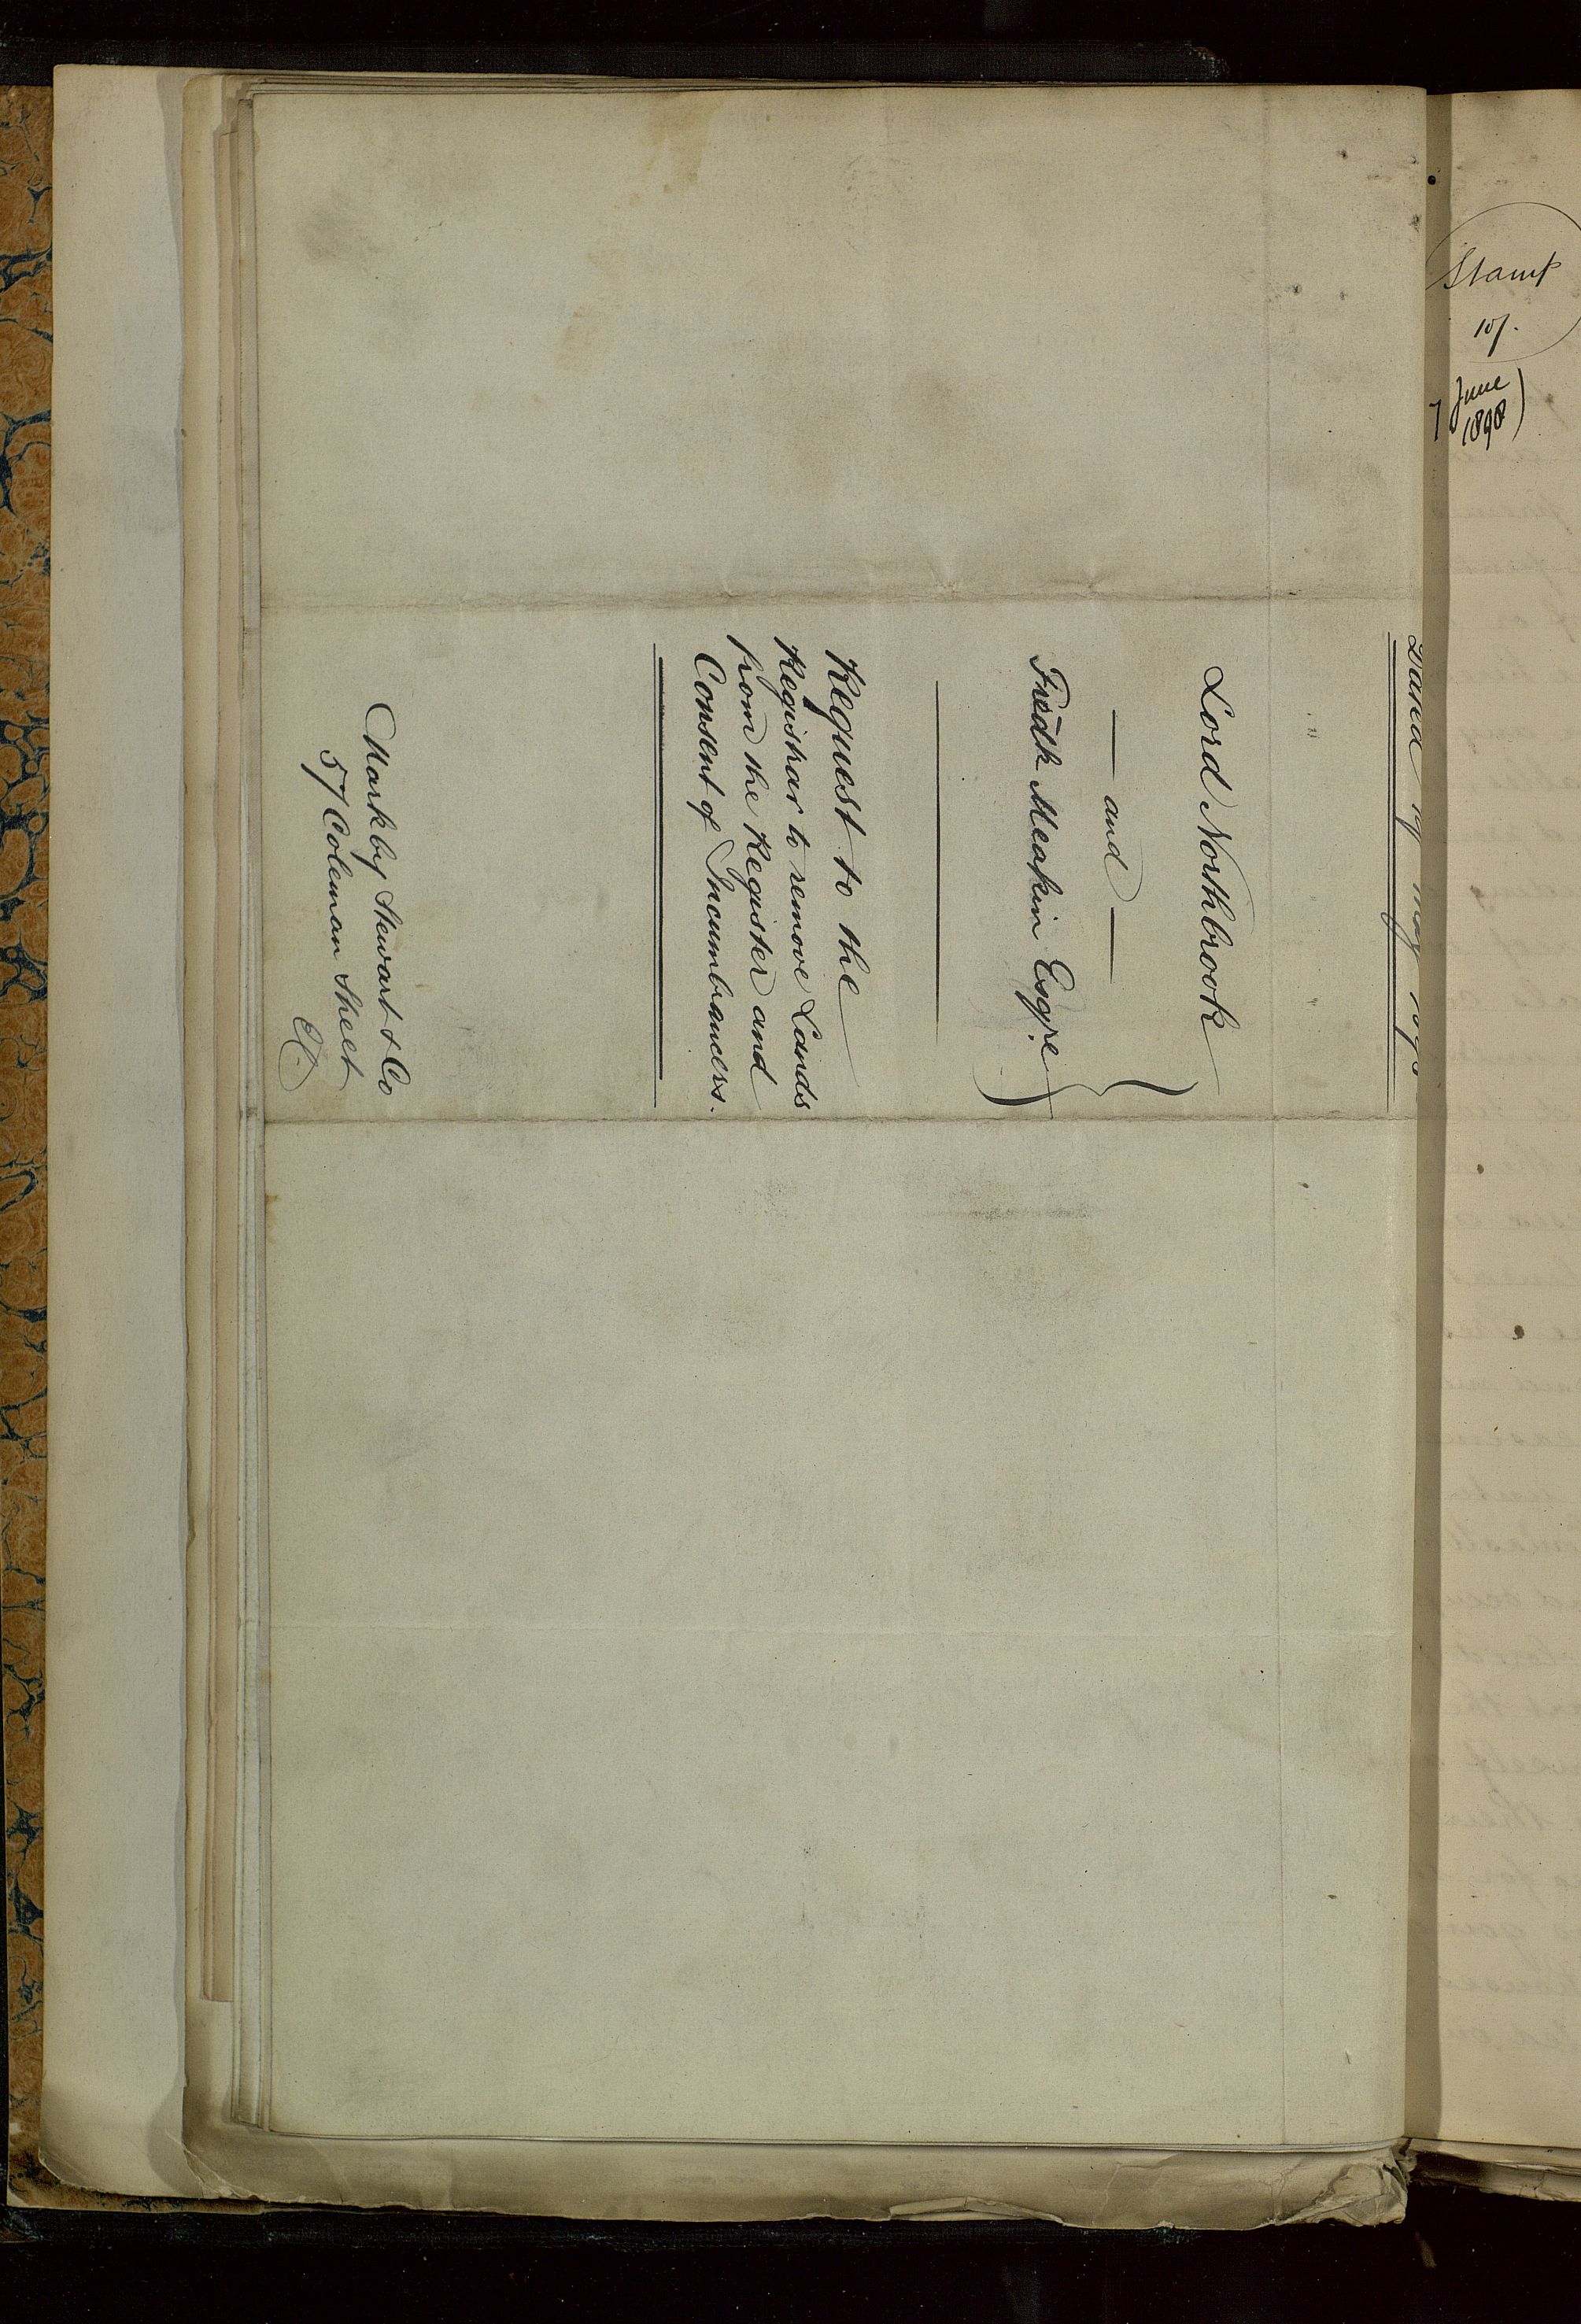 Dated 19 May 1898
Lord Northbrook
and
Fredk Meakin Esqre
Request to the
Registrar to remove Lands
from the Register and
Consent of Incumbrancers.
Markby Stewart & Co
57 Coleman Street
E.C.
Stamp
10/.
7 June
1898)